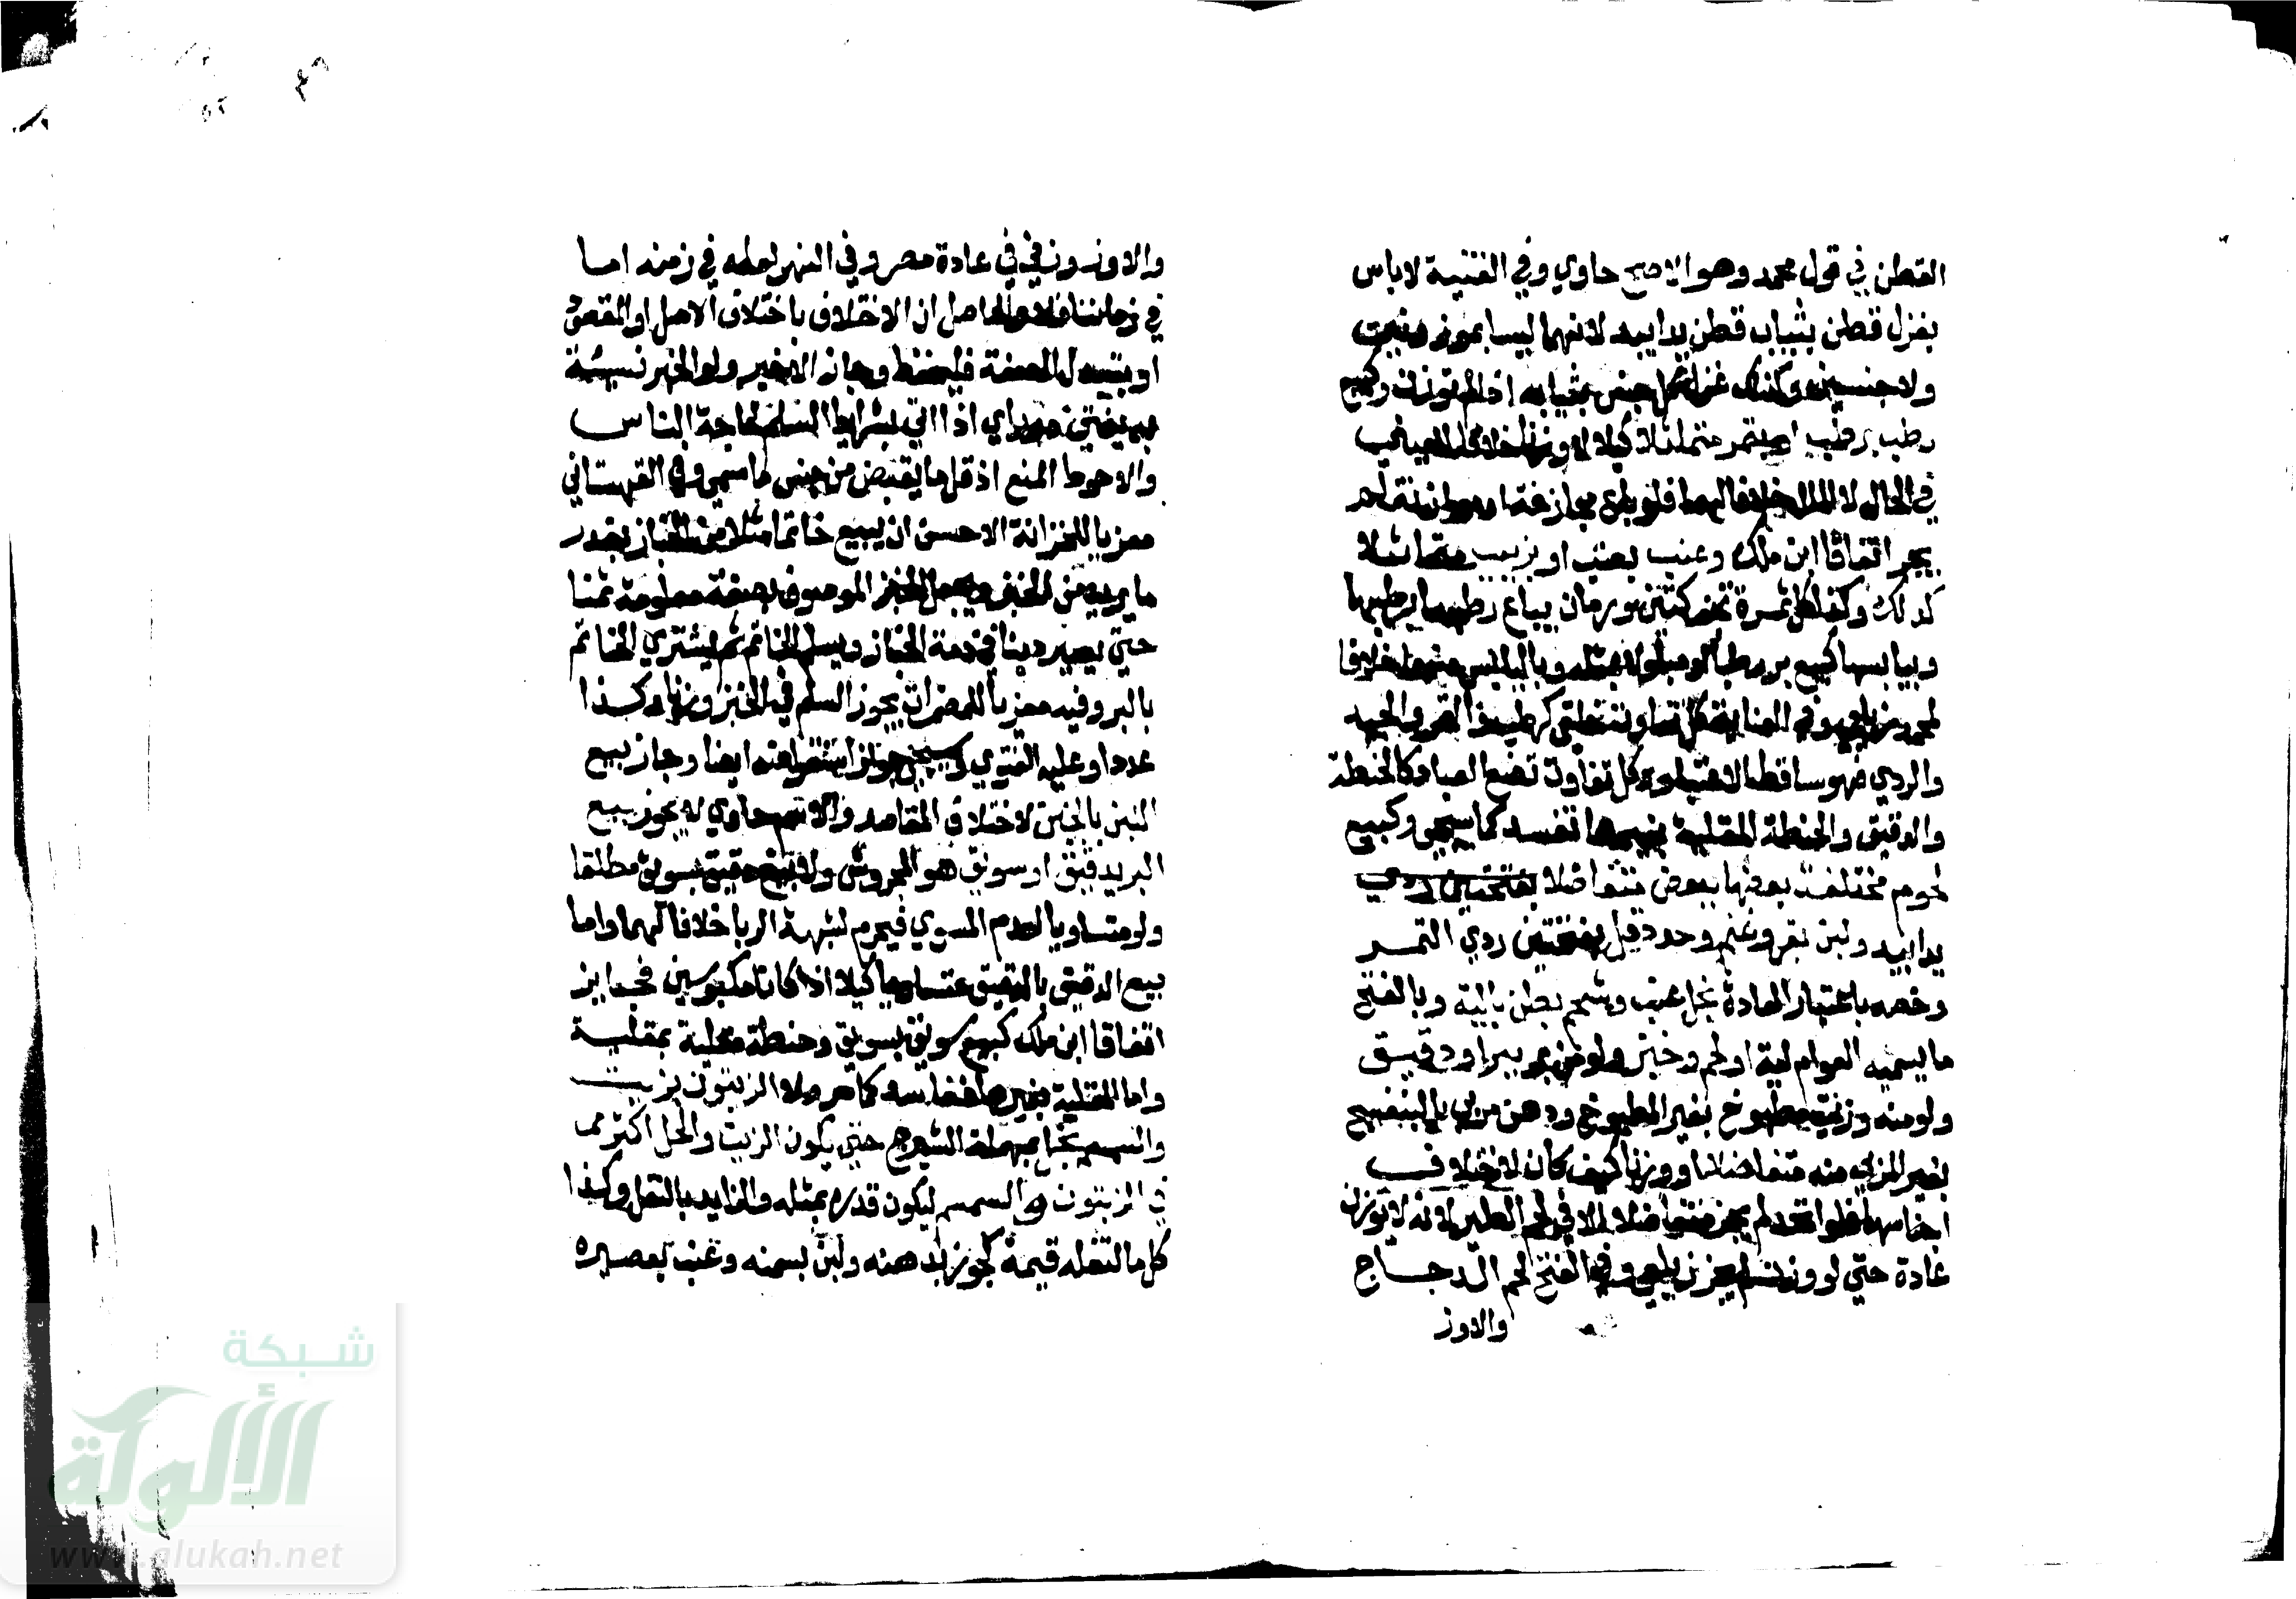 القطن في قول محمد وهو الاصح حاوي وفي القنية لاباس
بغزل قطن بثياب قطن يدا بيد لانهما ليسا بموزونين
ولا جنسين وكذلك غزل كل جنس بثيابه اذا لم توزن وكبيع
رطب برطب او بتمر متماثلا كيلا لا وزنا خلافا للعيني
في الحال لا المال خلافا لهما فلو باع مجازفة لم
يجز اتفاقا ابن ملك وعنب بعنب او بزبيب متماثلا
كذلك وكذا كل ثمرة تجف كتين ورمان يباع رطبها برطبها
وبيابسها كبيع بر رطبا او مبلولا بمثله وباليابس
وفي العناية كل تفاوت خلقي كرطب والتمر والجيد
والردي فهو ساقط الاعتبار وكل تفاوت بصنع العباد كالحنطة
والدقيق والحنطة المقلية بغيرها تفسد كما سيجي وكبيع
لحوم مختلفة بعضها ببعض متفاضلا
يدا بيد ولبن بقر وغنم وخل دقل بفتحتين ردي التمر
وخصه باعتبار العادة بخل عنب وشحم بطن بالية وبالفتح
ما يسميه العوام لية او لحم وخبز ولو من بر ببر او دقيق
ولو منه وزيت مطبوخ بغير المطبوخ ودهن مربي بالبنفسج
بغير المربي منه متفاضلا او وزنا كيف كان لاختلاف
اجناسها فلو اتحد لم يجز متفاضلا الا في لحم الطير لانه لا يوزن
عادة حتي لو وزن لم يجز زيلعي وفي الفتح لحم الدجاج
والاوز
والاوز وزني في عادة مصر وفي النهر لعله في زمنه اما
في زماننا فلا والحاصل ان الاختلاف باختلاف الاصل او المقصود
او بتبدل الصفة فليحفظ وجاز الاخير ولو الخبز نسيئة
به يفتي درر اي اذا اتي بشرايط السلم لحاجة الناس
والاحوط المنع اذ قل ما يقبض من جنس ما سمي وفي القهستاني
معزيا للخزانة الاحسن ان يبيع خاتما مثلا من الخباز بقدر
ما يريد من الخبز ويجعل الخبز الموصوف بصفة معلومة ثمنا
حتي يصير دينا في ذمة الخباز ويسلم الخاتم ثم يشتري الخاتم
بالبر وفيه معزيا للمضمرات يجوز السلم في الخبز وزنا وكذا
عددا وعليه الفتوي وسيجي جواز استقراضه ايضا وجاز بيع
اللبن بالجبن لاختلاف المقاصد والاسم حاوي لا يجوز بيع
البر بدقيق او سويق هو المجروش ولا بيع دقيق بسويق مطلقا
ولو متساويا لعدم المسوي فيحرم لشبهة الربا خلافا لهما واما
بيع الدقيق بالدقيق متساويا كيلا اذا كانا مكبوسين فجايز
اتفاقا ابن ملك كبيع سويق بسويق وحنطة مقلية بمقلية
واما المقلية بغيرها ففاسد كما مر ولا الزيتون بزيت
والسمسم بحل بمهملة الشيرج حتي يكون الزيت والحل اكثر مما
في الزيتون والسمسم ليكون قدره بمثله والزايد بالثفل وكذا
كل ما لثفله قيمة كجوز بدهنه ولبن بسمنه وعنب بعصيره
شبكة
الألوكة
www.alukah.net